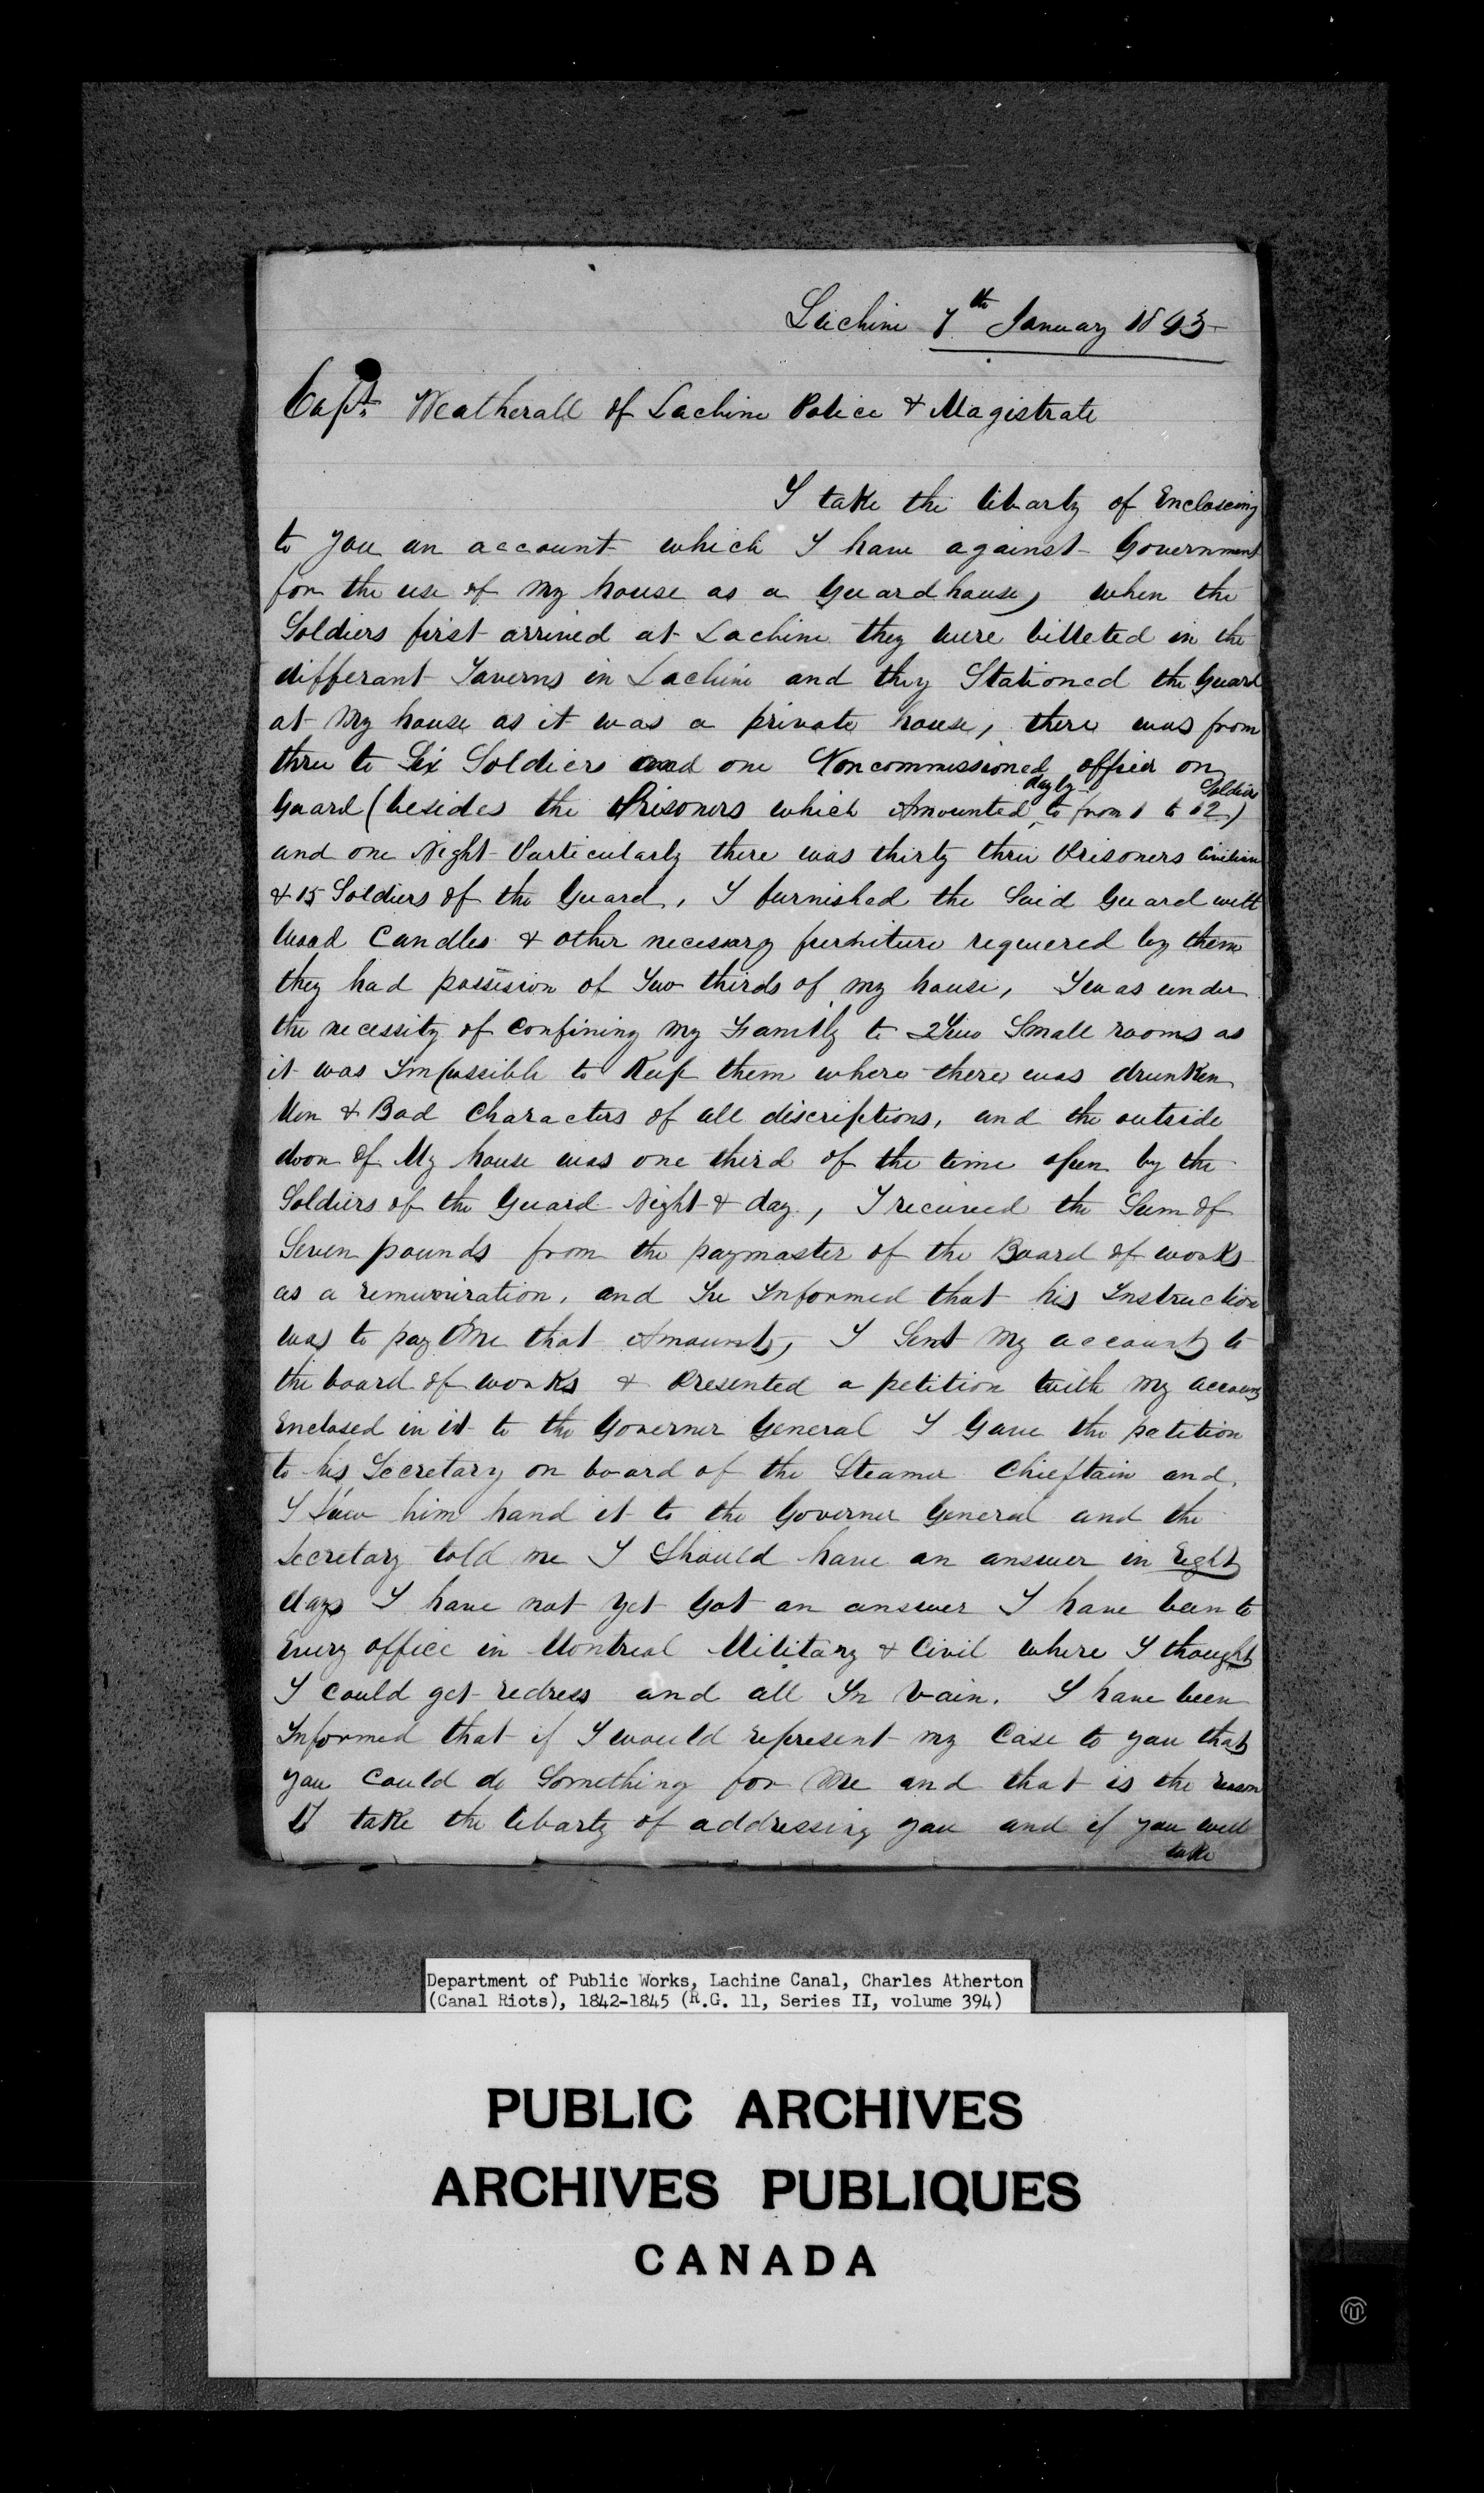 Lachine 7th January 1843
Capt. Weatherall of Lachine Police & Magistrate
I take the libarty of Encloseing
to you an account which I have against Government
for the use of my house as a Guardhouse, when the
Soldiers first arrived at Lachine they were billeted in the
differant Taverns in Lachine and they Stationed the Guard
at my house as it was a private house, there was from
three to Six Soldiers and one Noncommissioned officer on
dayly Soldiers
Guard (besides the Prisoners which Amounted to from 1 to 12)
and one Night Particularly there was thirty three Prisoners Civilian
& 15 Soldiers of the Guard, I furnished the Said Guard with
Wood Candles & other necessary furniture requiered by them
they had possision of Two thirds of my house, I was under
the necessity of Confining my Family to 2 Two Small rooms as
it was Impossible to Keep them where there was drunken
Men & Bad Characters of all discriptions, and the outside
door of My house was one third of the time open by the
Soldiers of the Guard Night & day, I received the Sum of
Seven pounds from the paymaster of the Board of works
as a remuniration, and he Informed that his Instruction
was to pay Me that Amount, I Sent My account to
the board of works & Presented a petition with my account
Enclosed in it to the Governer General I Gave the patition
to his Secretary on board of the Steamer Chieftain and
I Saw him hand it to the Governer General and the
Secretary told me I Should have an answer in Eight
days I have not yet Got an answer I have been to
Every office in Montreal Military & Civil where I thought
I Could get redress and all In Vain. I have been
Informed that if I would represent my Case to you that
you Could do Something for Me and that is the reason
I take the libarty of addressing you and if you will
take
Department of Public Works, Lachine Canal, Charles Atherton
(Canal Riots), 1842-1845 (R.G. 11, Series II, volume 394)
PUBLIC ARCHIVES
ARCHIVES PUBLIQUES
CANADA